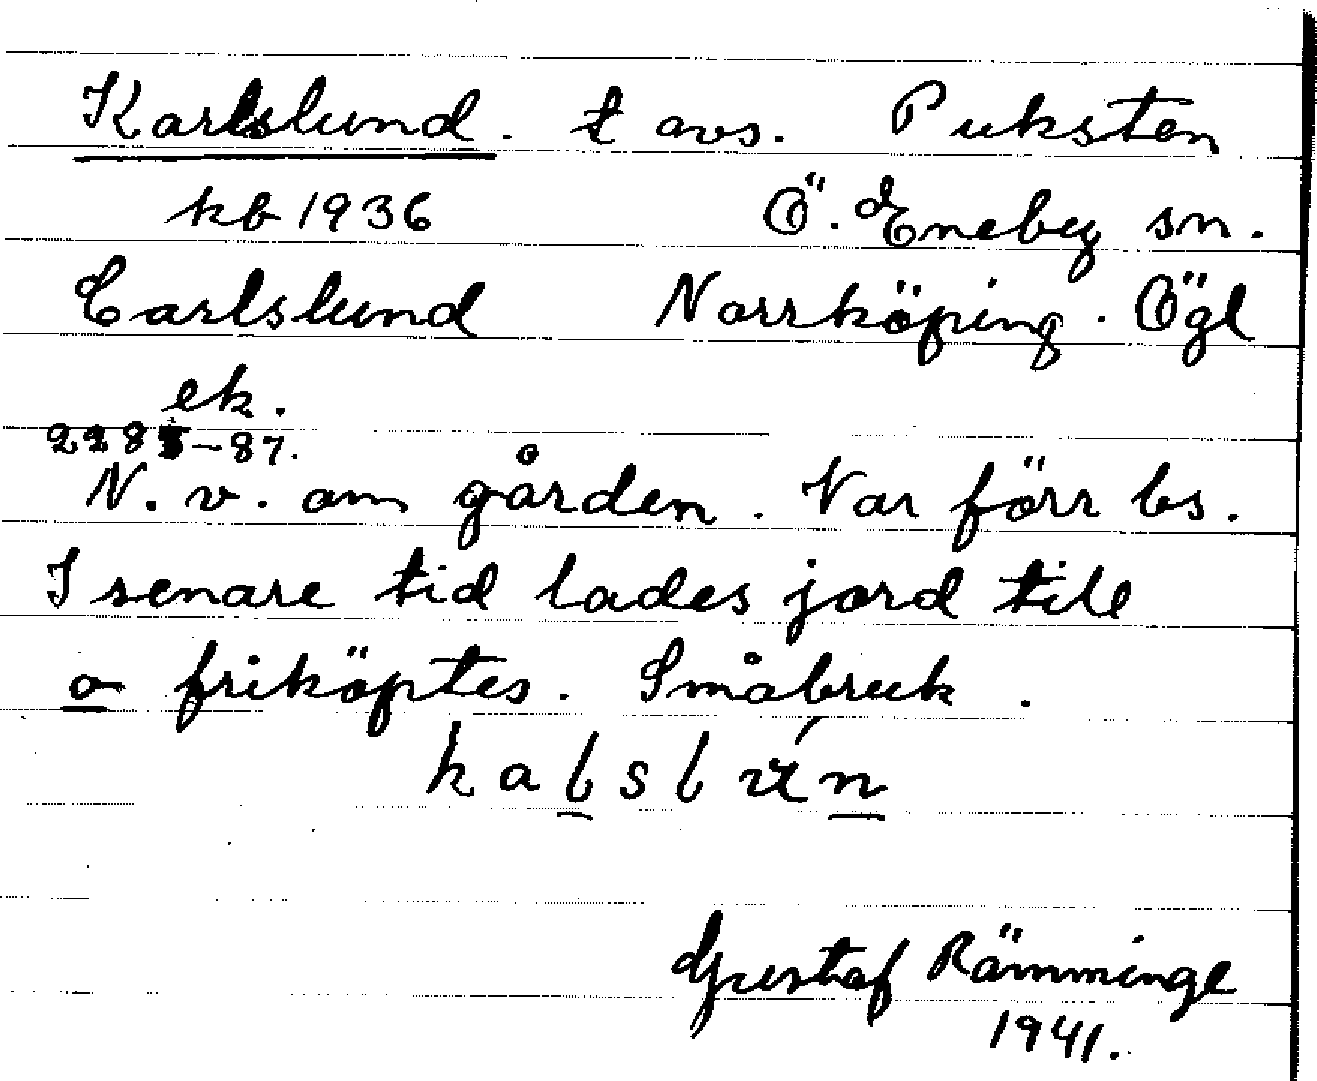 Karlslund. t avs. Puksten
kb 1936 Ö. Eneby sn.
Carlslund Norrköping. Ögl
ek.
2285–87.
N. v. om gården. Var förr bs.
I senare tid lades jord till
o friköptes. Småbruk.
kalslún
Gustaf Rämminge
1941.